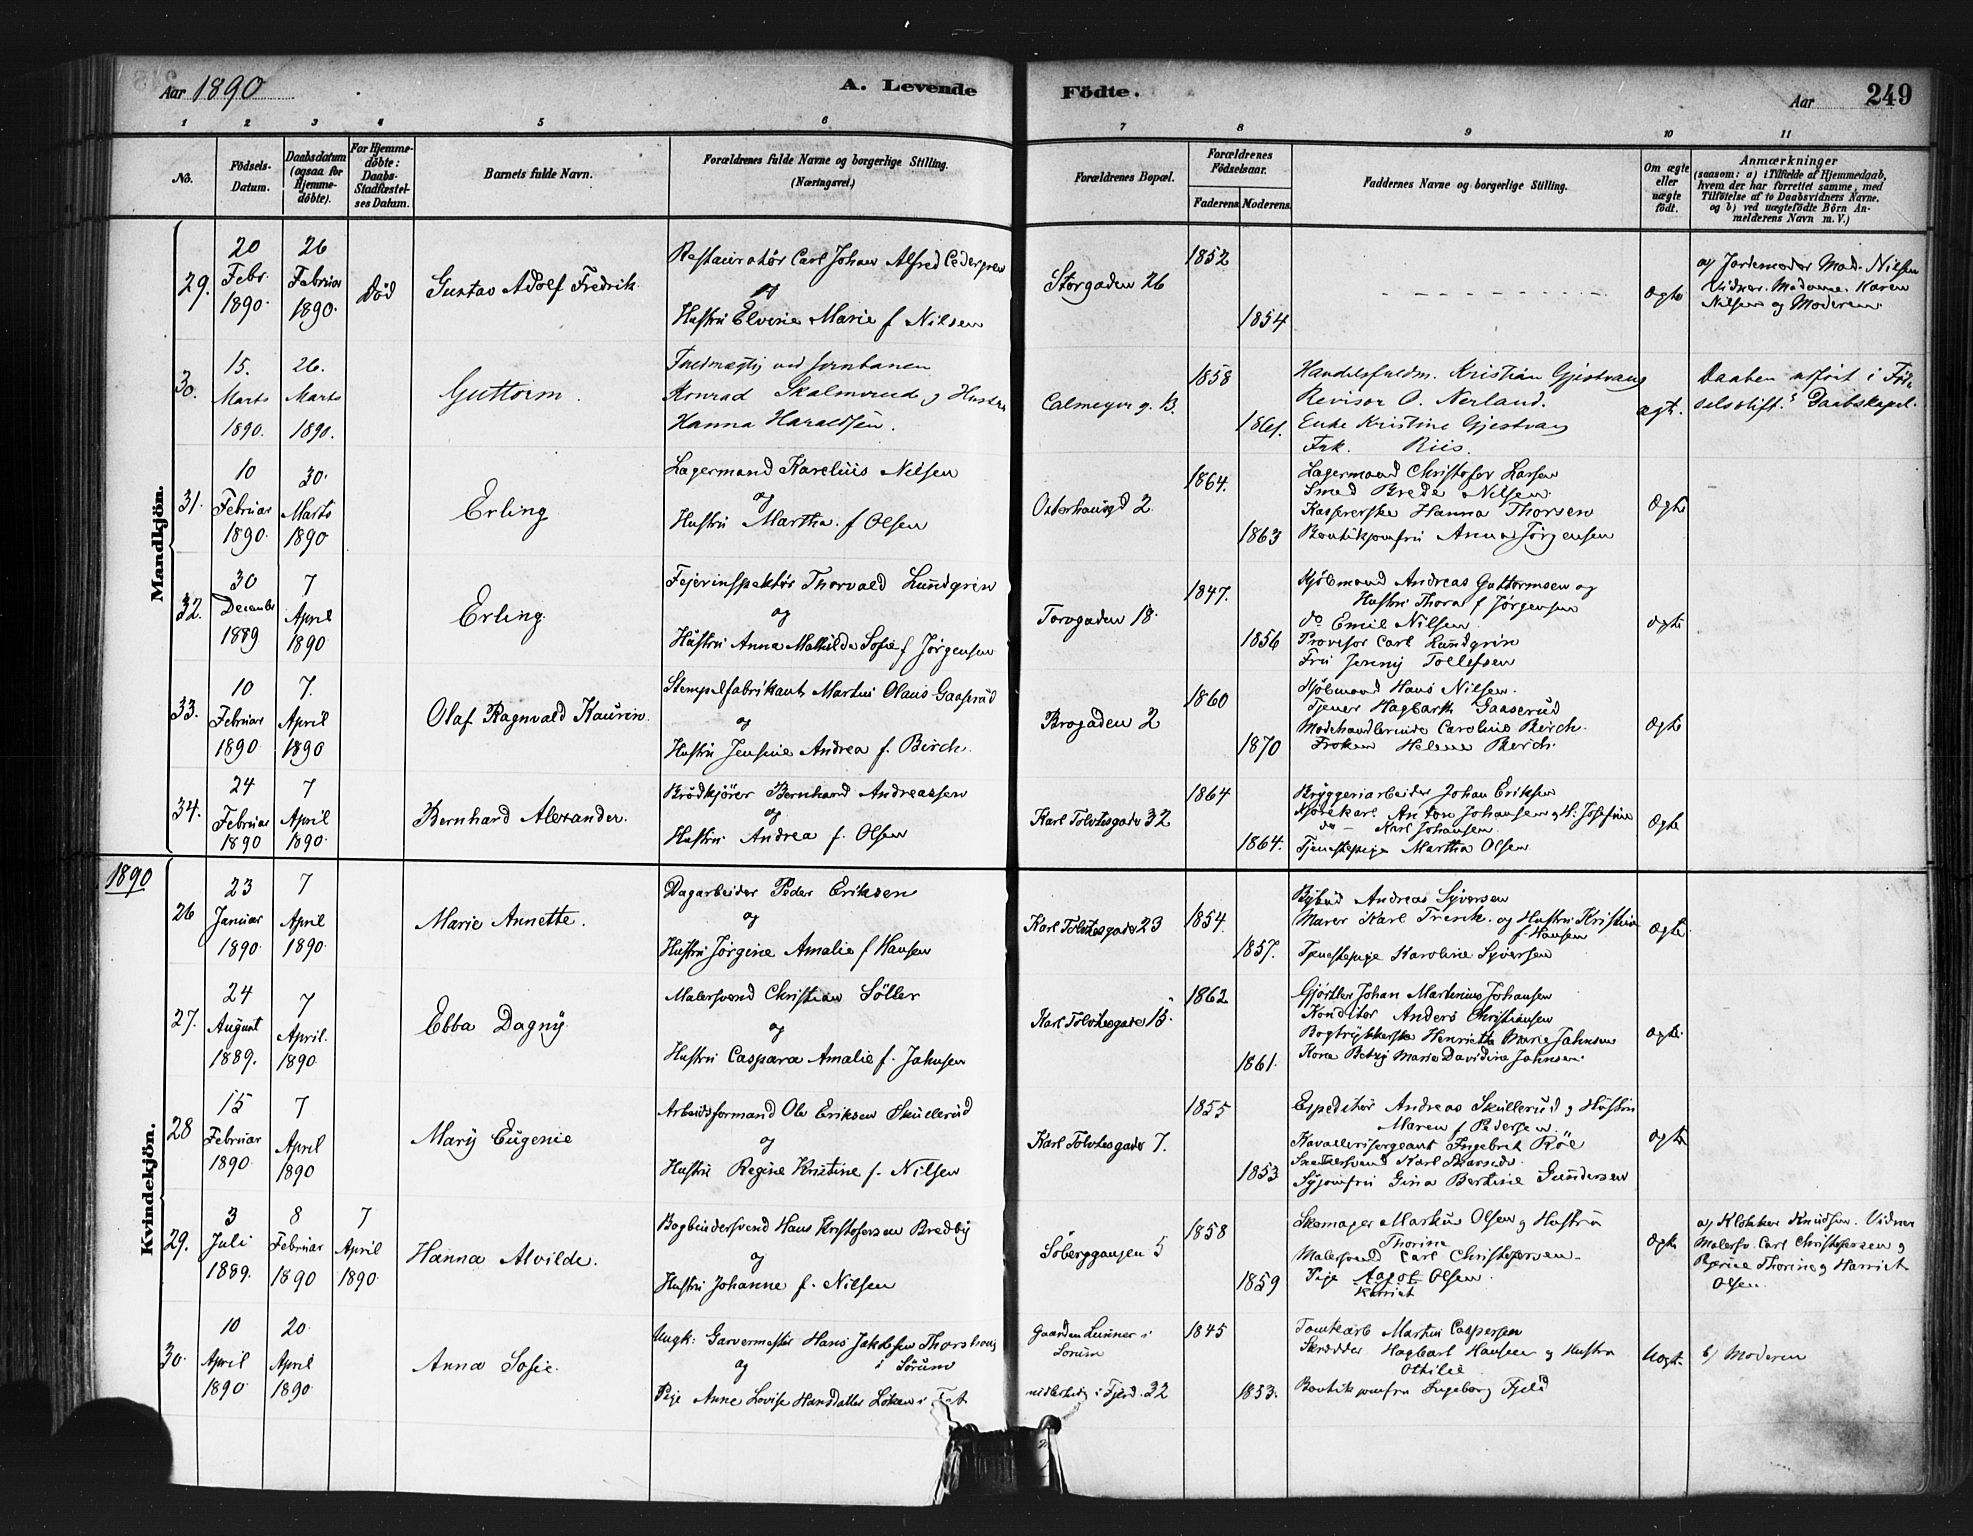 Aar 1890
A. Levende
Födte.
Aar
249
1 2 3 4 5 6 7 8 9 10 11
No.
Födsels-
Datum.
Daabsdatum
(ogsaa for
Hjemme-
döbte).
For Hjemme-
döbte:
Daabs-
Stadfæstel-
ses Datum.
Barnets fulde Navn.
Forældrenes fulde Navne og borgerlige Stilling.
(Næringsvei.)
Forældrenes Bopæl.
Forældrenes
Födselsaar.
Faderens. Moderens.
Faddernes Navne og borgerlige Stilling.
Om ægte
eller
uægte
födt.
Anmærkninger
(saasom: a) i Tilfælde af Hjemmedaab,
hvem der har forrettet samme, med
Tilföielse af to Daabsvidners Navne,
og b) ved uægtefödte Börn An-
melderens Navn m. V.)
Mandkjön.
29.
20
Febr.
1890.
26
Februar
1890.
Död
Gustav Adolf Fredrik
Restauratör Carl Johan Alfred Cedergren
og
Hustru Elvine Marie f Nilsen
Storgaden 26
1852
1854
ægte
a) Jordemoder Mad. Nilsen
Vidner. Madame Karen
Nilsen og Moderen
30.
15.
Marts
1890.
26.
Marts
1890.
Guttorm.
Fuldmægtig ved Jernbanen
Konrad Skalmerud og Hustru
Hanna Haraldsen.
Calmeyer g. 13.
1858
1861.
Handelsfuldm. Kristian Gjestvang
Revisor O. Nerland.
Enke Kristine Gjestvang
Frk. Riis.
ægte.
Daaben udført i Fød-
selsstift.s Daabskapel.
31.
10
Februar
1890.
30.
Marts
1890
Erling
Lagermand Karelius Nilsen
og
Hustru Martha f Olsen
Osterhausgd 2
1864.
1863
Lagermand Christofer Larsen
Smed Brede Nilsen.
Kasererske Hanna Thorsen
Boutikjomfru Anna Jörgensen
Ægte
32.
30
December
1889
7
April
1890
Erling
Feierinspektör Thorvald Lundgren
og
Hustru Anna Mathilde Sofie f Jörgensen
Torvgaden 18.
1847.
1856
Kjöbmand Andreas Guttormsen og
Hustru Thora f Jörgensen
do Emil Nilsen
Provisor Carl Lundgren
Fru Jenny Tollefsen
ægte
33.
10
Februar
1890
7.
April
1890
Olaf Ragnvald Kaurin.
Stempelfabrikant Martin Olaus Gaaserud
og
Hustru Jensine Andrea f. Birch.
Brogaden 2
1860
1870
Kjöbmand Hans Nilsen.
Tjener Hagbarth Gaaserud
Modehandlerinde Caroline Birch.
Fröken Helene Birch.
Ægte
34.
24
Februar
1890
7
April
1890.
Bernhard Alexander.
Brödkjörer Bernhard Andreassen
og
Hustru Andrea f. Olsen
Karl Tolvtesgade 32
1864
1864.
Bryggeriarbeider Johan Eriksen
Kjörekarl Anton Johansen og H. Josefine
do - Karl Johansen
Tjenestepige Martha Olsen
Ægte
1890
Kvindekjön.
26
23
Januar
1890
7
April
1890.
Marie Annette.
Dagarbeider Peder Eriksen
og
Hustru Jörgine Amalie f Hansen
Karl Tolvtesgade 23
1854.
1857.
Bybud Andreas Syversen
Murer Karl Trenk. og Hustru Kristine
f. Hansen
Tjenestepige Karoline Syversen
Ægte
27.
24
August
1889.
7
April.
1890
Ebba Dagny
Malersvend Christian Söller
og
Hustru Caspara Amalie f. Jahnsen
Karl Tolvtesgade 15.
1862
1861.
Gjörtler Johan Martinius Johansen
Konditor Anders Christiansen
Bogtrykkerske Henriette Marie Jahnsen
Kone Betsy Marie Davidine Jahnsen
ægte
28
15
Februar
1890.
7
April
1890
Mary Eugenie
Arbeidsformand Ole Eriksen Skullerud
og
Hustru Regine Kristine f. Nilsen
Karl Tolvtesgade 7.
1855
1853
Expeditör Andreas Skullerud og Hustru
Maren f Pedersen
Kavallerisergeant Ingebret Röe
Snedkersvend Karl
Syjomfru Gina Bertine Gundersen
ægte
29.
3
Juli
1889.
8
Februar
1890
7
April
1890.
Hanna Alvilde.
Bogbindersvend Hans Kristofersen Bredby
og
Hustru Johanne f. Nilsen
Söberggangen 5
1858
1859
Skomager Markus Olsen og Hustru
Thorine
Malersvend Carl Christofersen
Pige Aagot Olsen.
Harriet
Ægte
a) Klokker Knudsen. Vidner
Malersv. Carl Christofersen og
Thorine og Harriet
Olsen
30.
10
April
1890
20
April
1890.
Anna Sofie.
Ungk: Garvermester Hans Jakobsen
og i Sörum
Pige Anne Lovise Hansdatter i Fet
Gaarden i
Sorum
midlertidig i Fjerd. 32
1845
1853.
Tomtkarl Martin Caspersen
Skrædder Hagbart Hansen og Hustru
Othilie
Boutikjomfru Ingeborg Fjeld
Uægte
b) Moderen